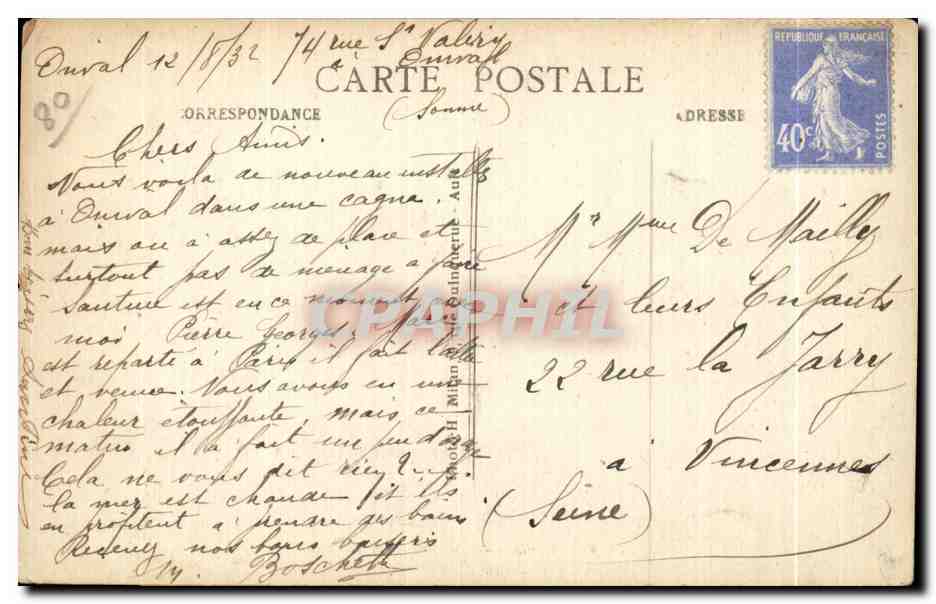 Onival 12/8/32 74 rue St Valery
à Onival
CARTE POSTALE
(Somme)
80
CORRESPONDANCE
ADRESSE
REPUBLIQUE FRANÇAISE
40c
POSTES
Chers Amis.
Nous voila de nouveau installés
à Onival dans une cagna.
mais on à assez de place et
surtout pas de menage a faire
est en ce moment avec
moi Pierre Georges, Marcel
est reparté à Paris il fait l'allé
et venue. Nous avons eu une
chaleur étouffante, mais ce
matin il a fait un peu d'orage
Cela ne vous dit rien?
La mer est chaude et ils
en profitent a prendre des bains
Recevez nos bons baisers
M. Boschett
Photo H. Milan, rue Quinquerue - Ault
Mr Mme De Mailly
et leurs Enfants
22 rue la Jarry
à Vincennes
(Seine)
CPAPHIL